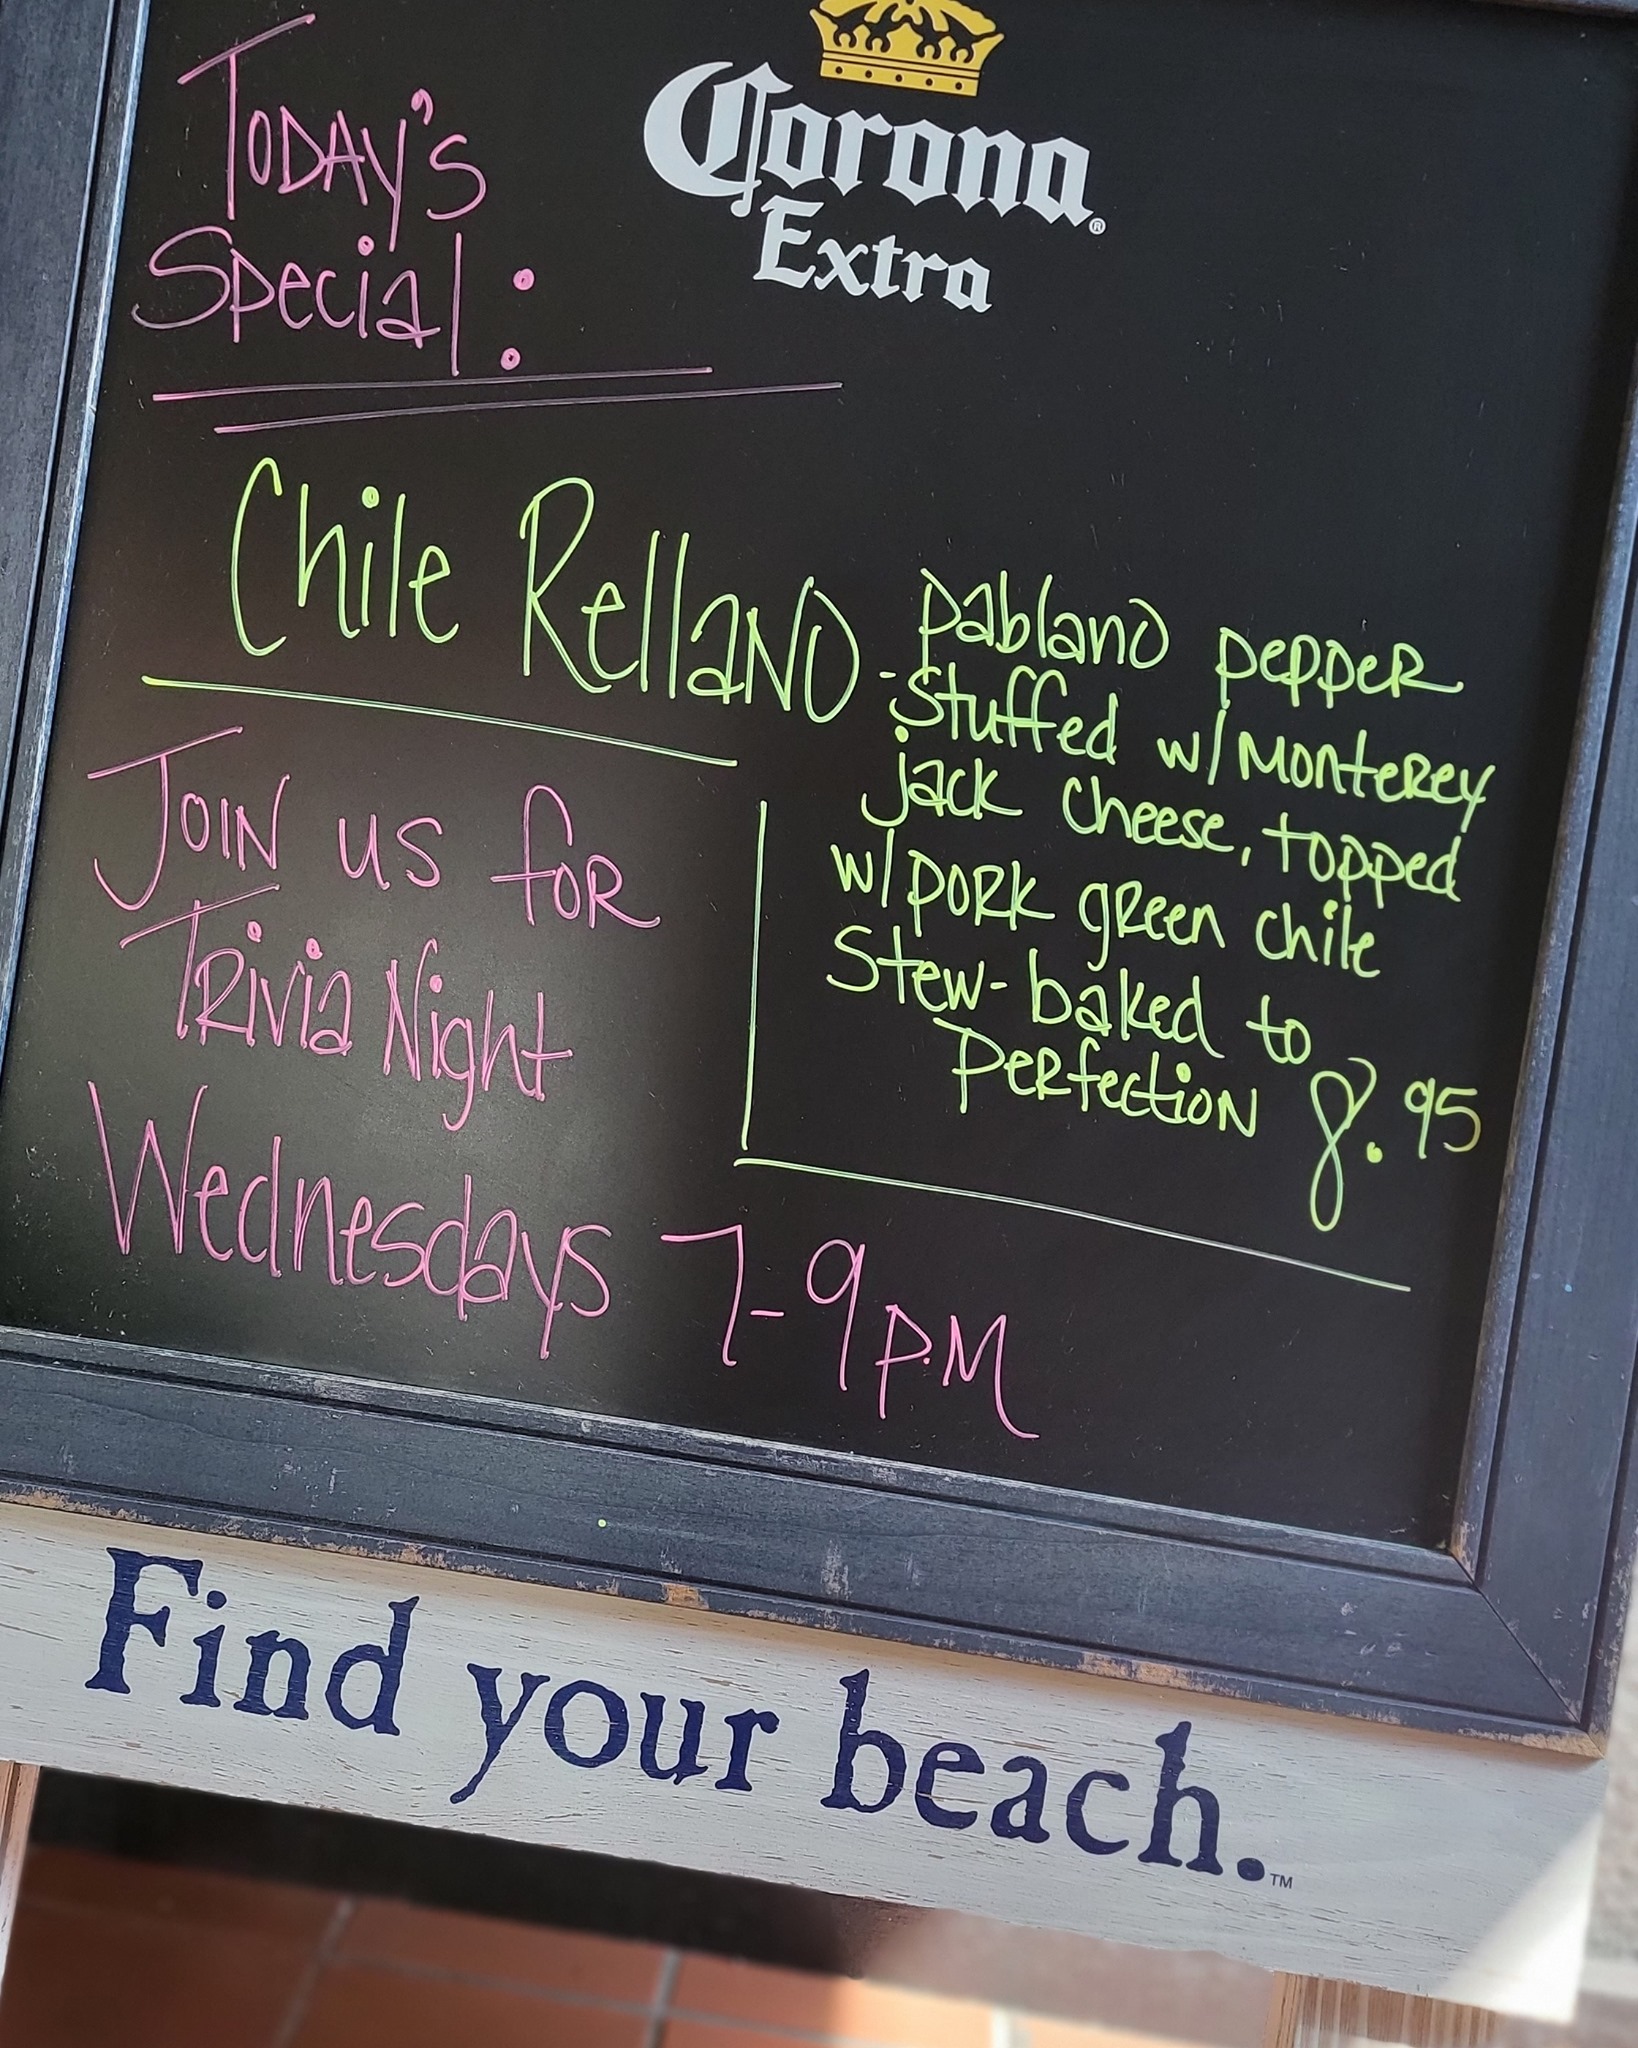 Corona®
Extra
Today's
Special:
Chile Rellano -
pablano pepper
stuffed w/ Monterey
jack cheese, topped
w/ pork green chile
stew - baked to
perfection 8.95
Join us for
Trivia Night
Wednesdays 7-9 P.M
Find your beach.™